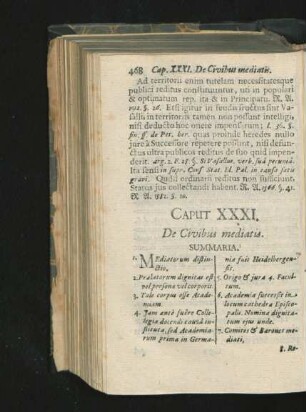 468 Cap. XXXI. De Civibus mediatis.
Ad territorii enim tutelam necessitatesque
publici reditus constituuntur, uti in populari
& optimatum rep. ita & in Principatu. R. A.
Etsi igitur in feudis fructus sint Va-
salli, in territoriis tamen non possunt intelligi,
nisi deducto hoc onere impositorum; l.
ff. de Pet. her. quas proinde hæredes nullo
jure à Successore repetere possunt, nisi defun-
ctus ultra publicos reditus de suo quid impen-
derit. arg. 2. F. 28. §. Si Vasallus,
Ita sensi in Conf. Stat. El. Pal. in causa satis
gravi. Quod si ordinarii reditus non sufficiunt,
Status jus collectandi habent. R. A.
R. A.
CAPUT XXXI.
De Civibus mediatis.
SUMMARIA.
1. MEdiatorum distin-
ctio,
2. Prælatorum dignitas est
vel personæ vel corporis.
3. Tale corpus esse Acade-
miam.
4. Jam antè fuêre Col-
legia docendi causâ in-
stituta, sed Academia-
rum prima in Germa-
nia fuit Heidelbergen-
sis.
5. Origo & jura 4. Facul-
tatum.
6. Academia successit in
locum cathedræ Episco-
palis. Nomina dignita-
tum ejus unde.
7. Comites & Barones me-
diati,
8. Re-